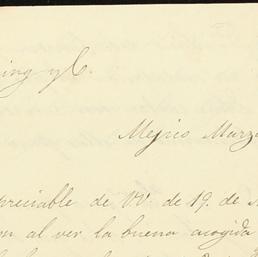 ing y C.
Mejico Marzo
preciable de VV. de 19. de
al ver la buena acogida